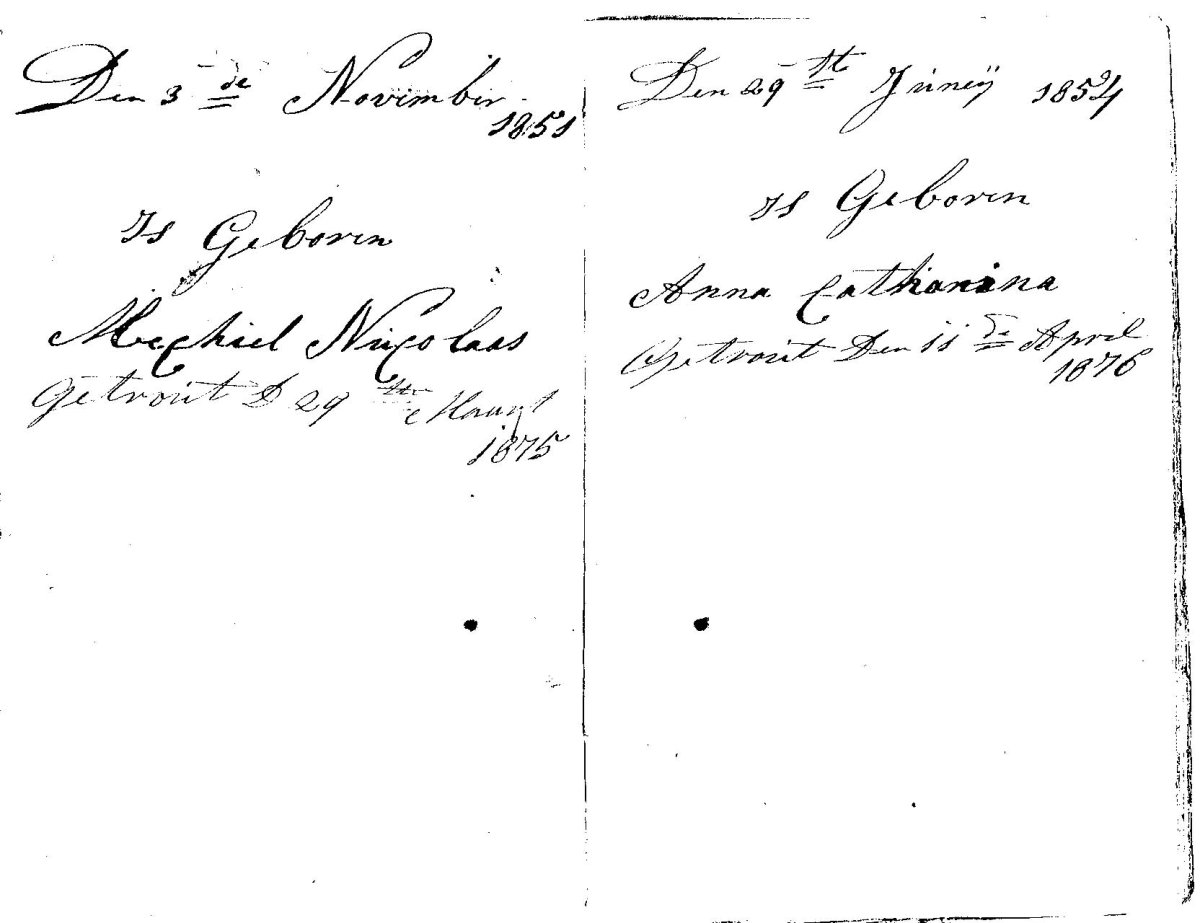 Den 3 de Novimbir
1851
Is Geborin
Mechiel Nicolaas
Getrout D 29 ste Maart
1875
Den 29 st Juneÿ 1854
is Geborin
Anna Catharina
Getrout Den 11 de April
1876